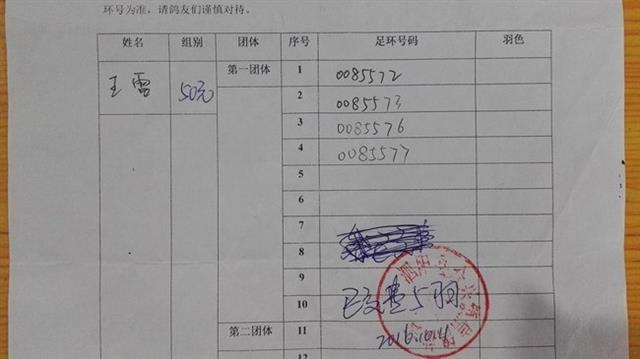 环号为准，请鸽友们谨慎对待。
姓名 组别 团体 序号 足环号码 羽色
王雪 50元 第一团体 1 0085572
2 0085573
3 0085576
4 0085577
5
6
7
8
9
10 已交费5羽
第二团体 11 2016.10.4
12